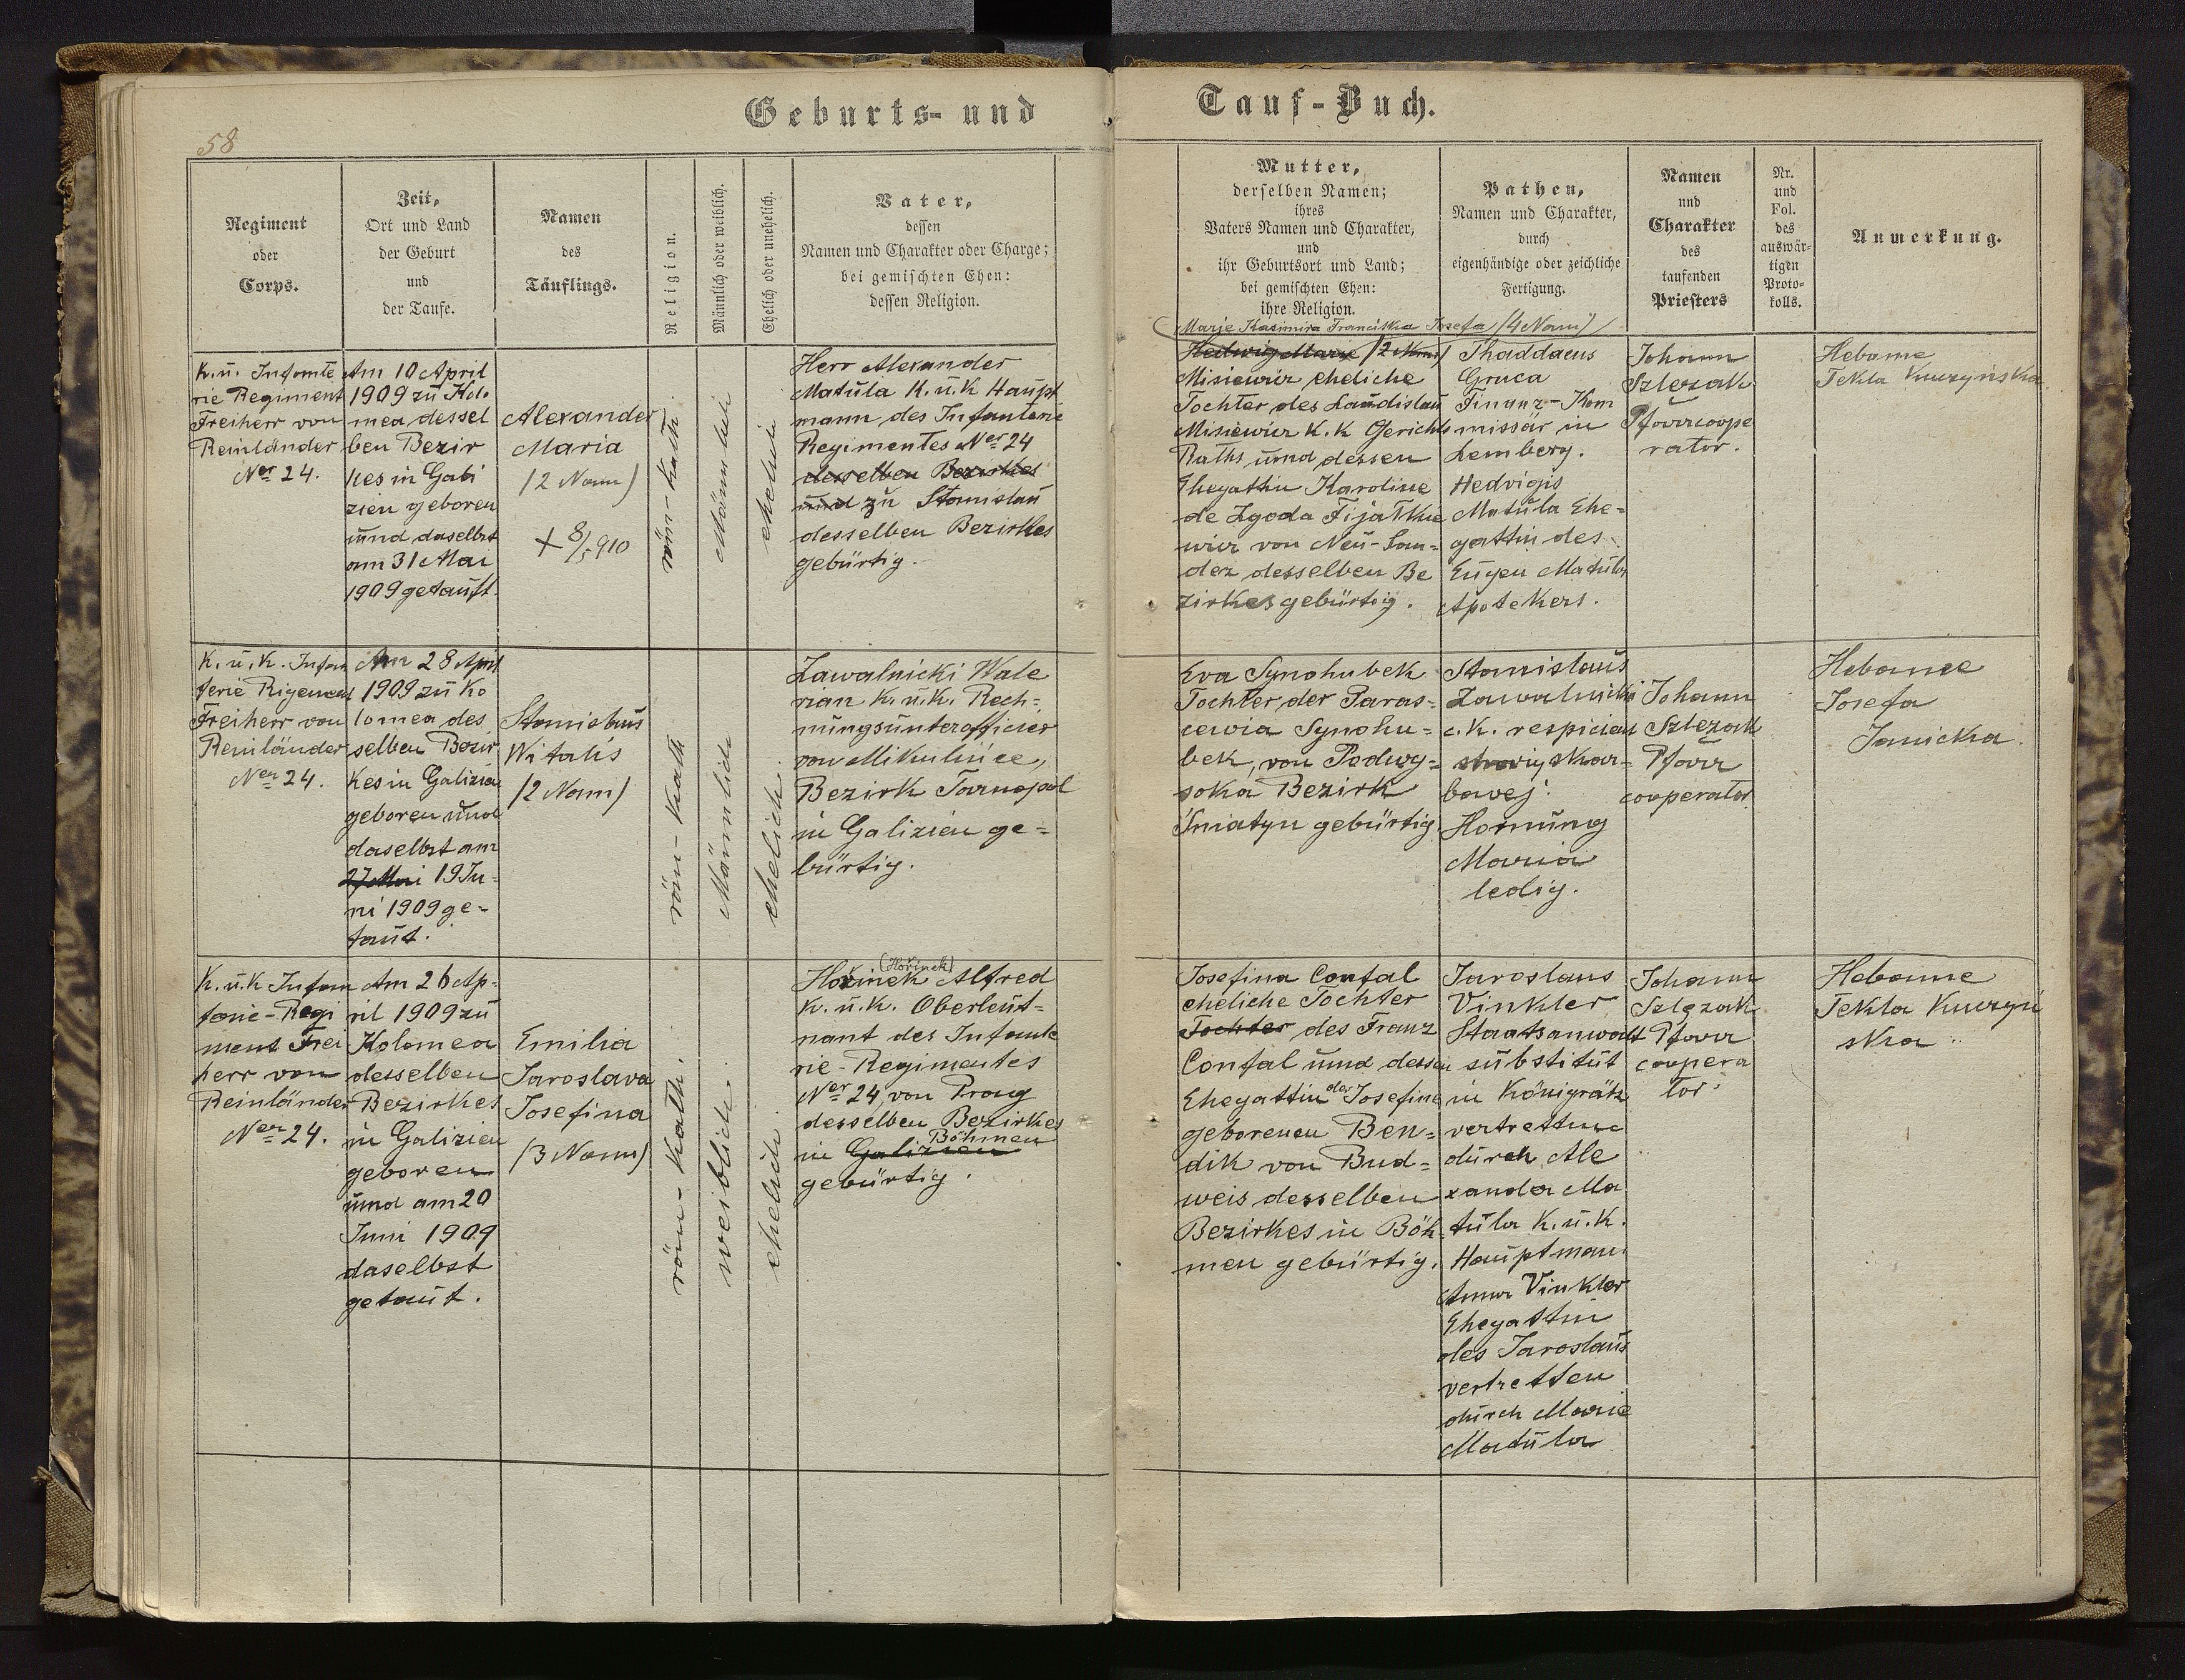 58
Geburts- und
Tauf-Buch.
Regiment
oder
Corps.
Zeit,
Ort und Land
der Geburt
und
der Taufe.
Namen
des
Täuflings.
Religion.
Männlich oder weiblich.
Ehelich oder unehelich.
Vater,
dessen
Namen und Charakter oder Charge;
bei gemischten Ehen:
dessen Religion.
Mutter,
derselben Namen;
ihres
Vaters Namen und Charakter,
und
ihr Geburtsort und Land;
bei gemischten Ehen:
ihre Religion.
Pathen,
Namen und Charakter,
durch
eigenhändige oder zeichliche
Fertigung.
Namen
und
Charakter
des
taufenden
Priesters
Nr.
und
Fol.
des
auswär-
tigen
Proto-
kolls.
Anmerkung.
K.u. Infomte
rie Regiment
Freiherr von
Reinländer
Ner 24.
Am 10 April
1909 zu Kol.
mea dessel
ben Bezir
kes in Gali
zien geboren
und daselbst
am 31 Mai
1909 getauft.
Alexander
Maria
(2 Nam)
+ 8/5 910
röm-kath.
Männlich
ehelich
Herr Alexander
Matula K.u.K Haupt
mann des Infanterie
Regimentes Ner 24
desselben Bezirkes
und zu Stanislau
desselben Bezirkes
gebürtig.
Marie Kasimira Franciska Josefa (4 Nam)
Hedwig Marie (2 Nam)
Misiewicz eheliche
Tochter des Laudislau
Misiewicz K.K Gerichts
Raths und dessen
Ehegattin Karoline
de Zgoda Fijałkie
wicz von Neu-San-
dez desselben Be
zirkes gebürtig.
Thaddaeus
Gruca
Finanz-Kom
missär in
Lemberg.
Hedvigis
Matula Ehe-
gattin des
Eugen Matula
Apotekers.
Johann
Szlęzak
Pfarrcoope
rator.
Hebame
Tekla Kuczyńska
K.u.K. Infan
terie Rigement
Freiherr von
Reinländer
Ner 24.
Am 28 April
1909 zu Ko
lomea des
selben Bezir
kes in Galizien
geboren und
daselbst am
27 Mai 19 Ju-
ni 1909 ge-
tauft.
Stanislaus
Witalis
(2 Nam)
röm-kath
Männlich
ehelich.
Zawalnicki Wale
rian K.u.K. Rech-
nungsunterofficier
von Mikulińce,
Bezirk Tarnopol
in Galizien ge-
bürtig.
Eva Synohubek
Tochter der Paras-
cewia Synohu-
bek, von Podwy-
soka Bezirk
Śniatyn gebürtig.
Stanislaus
Zawalnicki
c.k. respicient
straży skar-
bowej.
Hornung
Maria
ledig.
Johann
Szlęzak
Pfarr
cooperator
Hebame
Josefa
Janicka.
K.u.K Infan
terie-Regi
ment Frei
herr von
Reinländer
Ner 24.
Am 26 Ap-
ril 1909 zu
Kolomea
desselben
Bezirkes
in Galizien
geboren
und am 20
Juni 1909
daselbst
getauft.
Emilia
Jaroslava
Josefina
(3 Nam)
röm-kath.
weiblich.
ehelich.
(Hořinek)
Hořinek Alfred
K.u.K. Oberleut-
nant des Infante
rie-Regimentes
Ner 24, von Prag
desselben Bezirkes
Böhmen
in Galizien
gebürtig.
Josefina Confal
eheliche Tochter
Tochter des Franz
Confal und dessen
Ehegattin der Josefine
geborenen Ben-
dik von Bud-
weis desselben
Bezirkes in Böh-
men gebürtig.
Jaroslaus
Vinkler
Staatsanwalt
substitut
in Königrätz
vertretten
durch Ale
xander Ma
tula K.u.K.
Hauptmann
Anna Vinkler
Ehegattin
des Jaroslaus
vertretten
durch Marie
Matula
Johann
Szlęzak
Pfarr
coopera
tor
Hebame
Tekla Kuczyń
ska